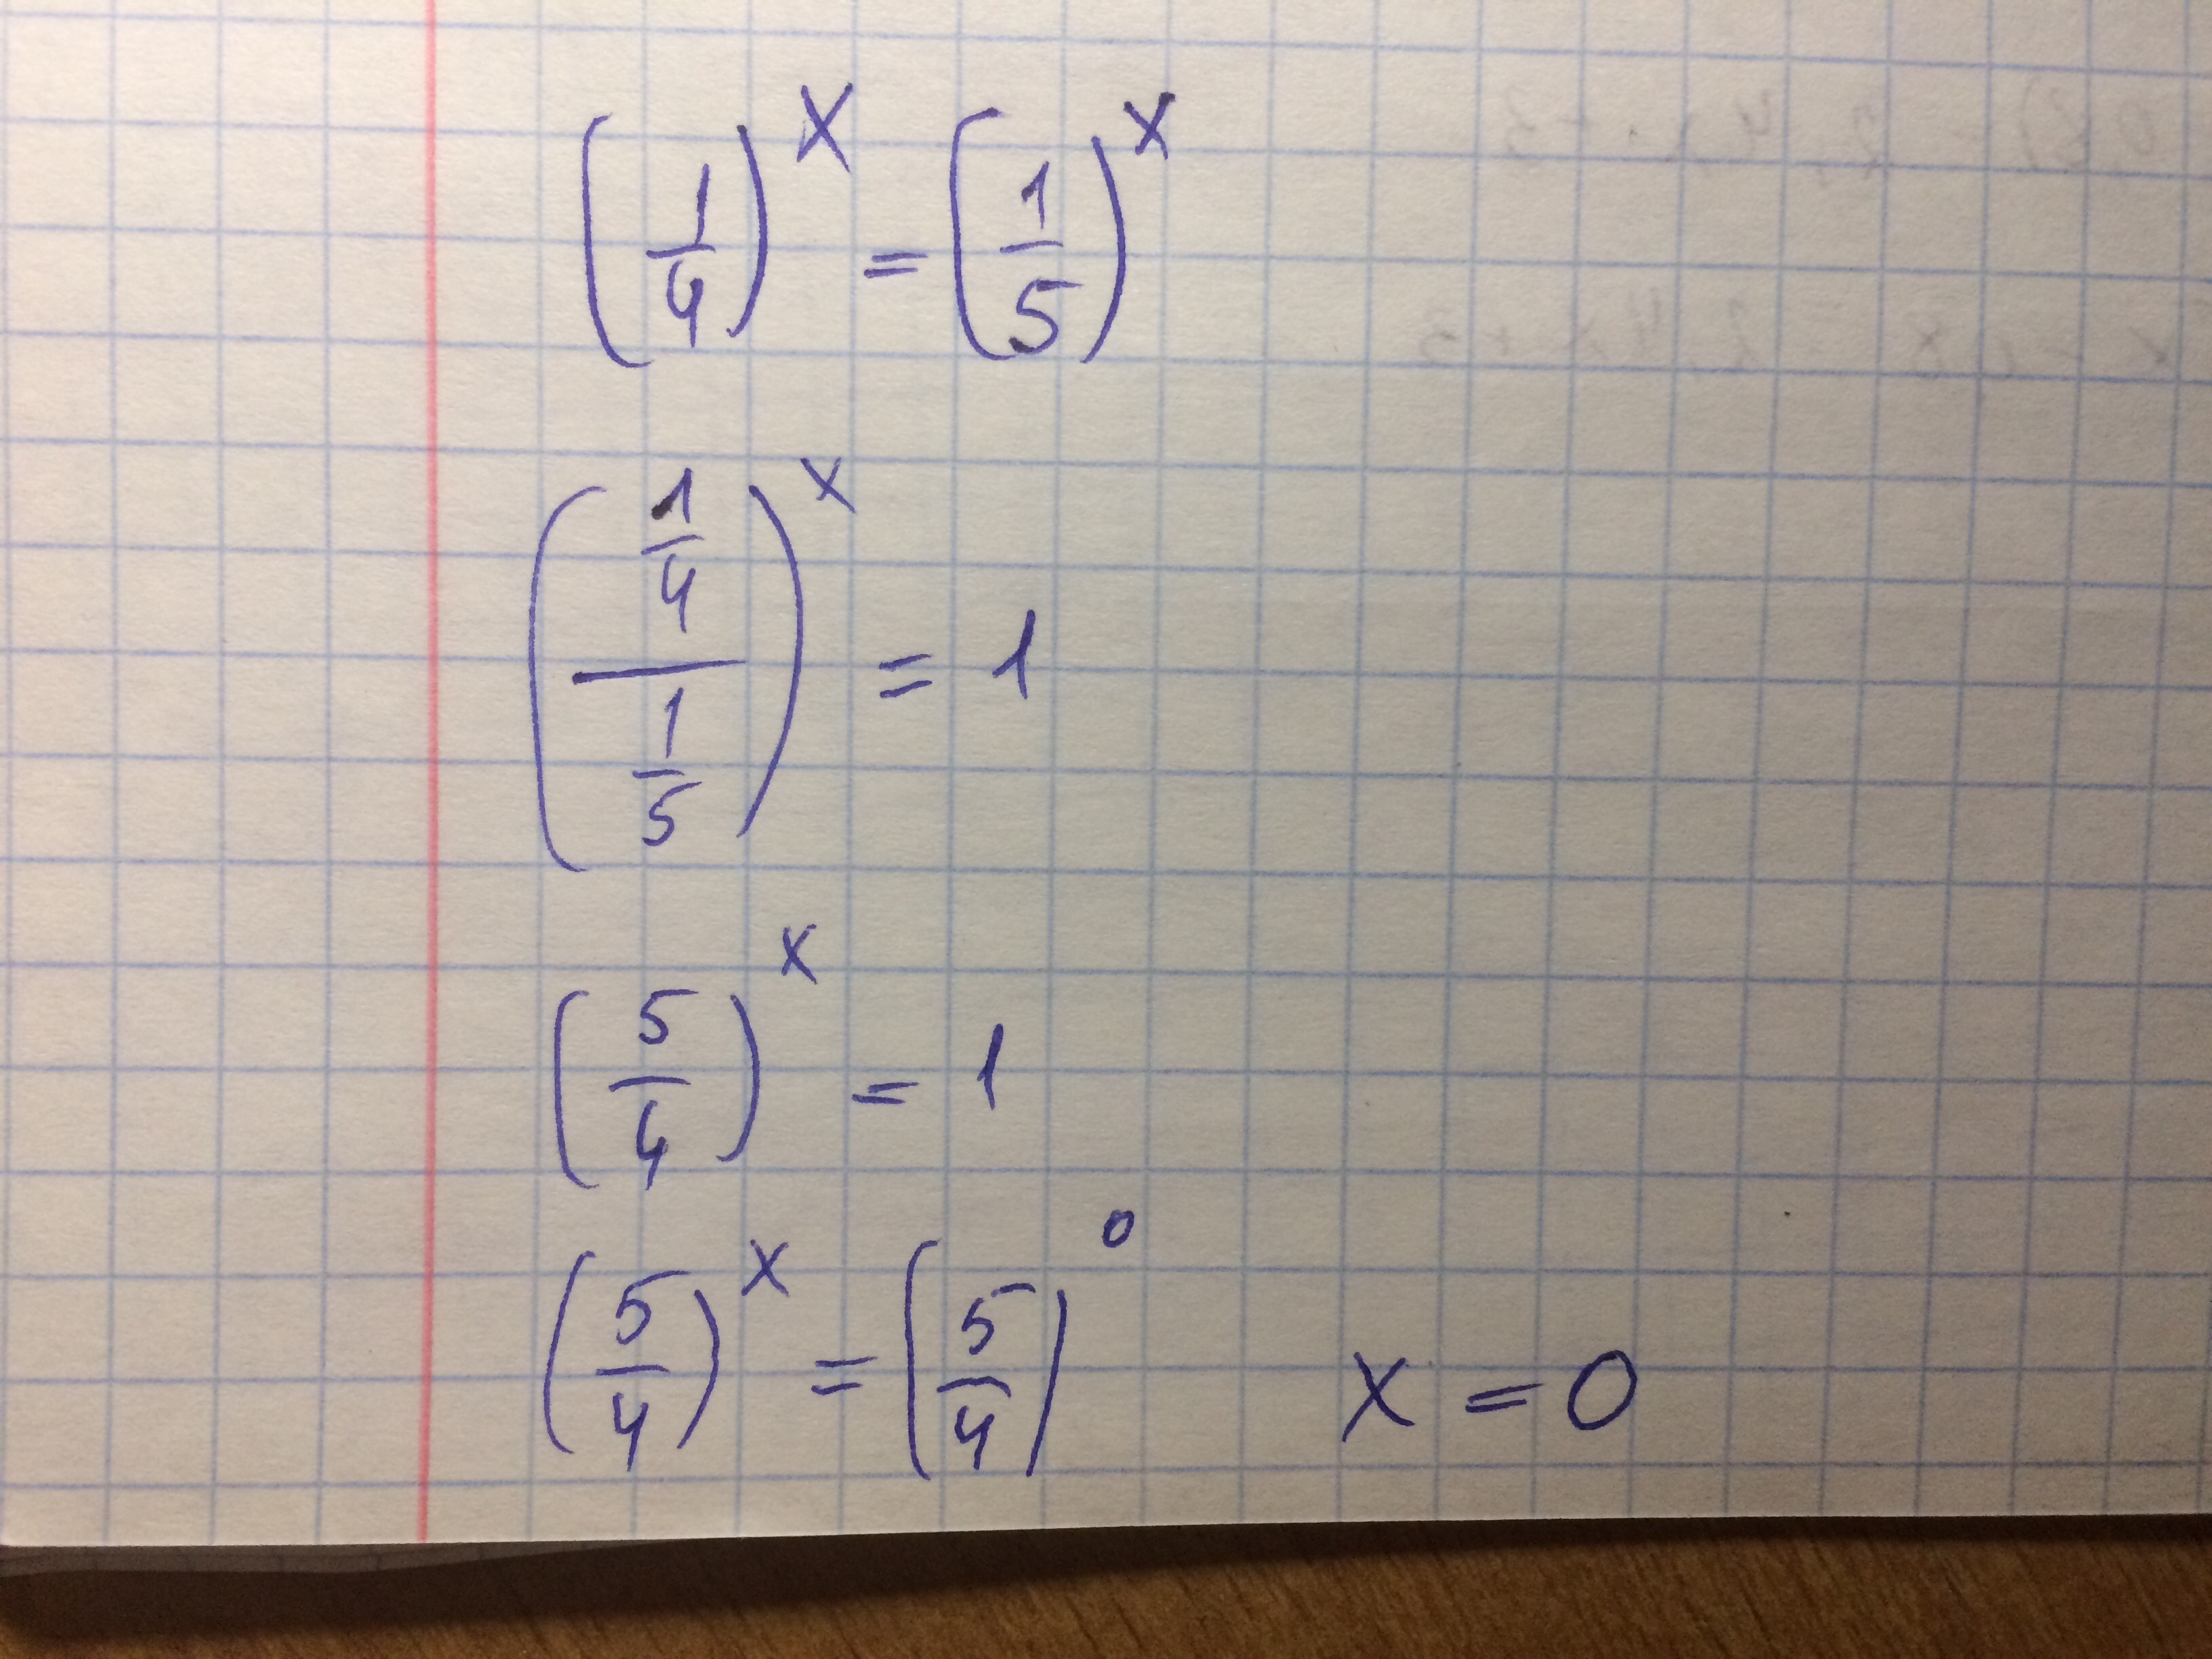 (1/4)^x = (1/5)^x
((1/4)/(1/5))^x = 1
(5/4)^x = 1
(5/4)^x = (5/4)^0 x = 0